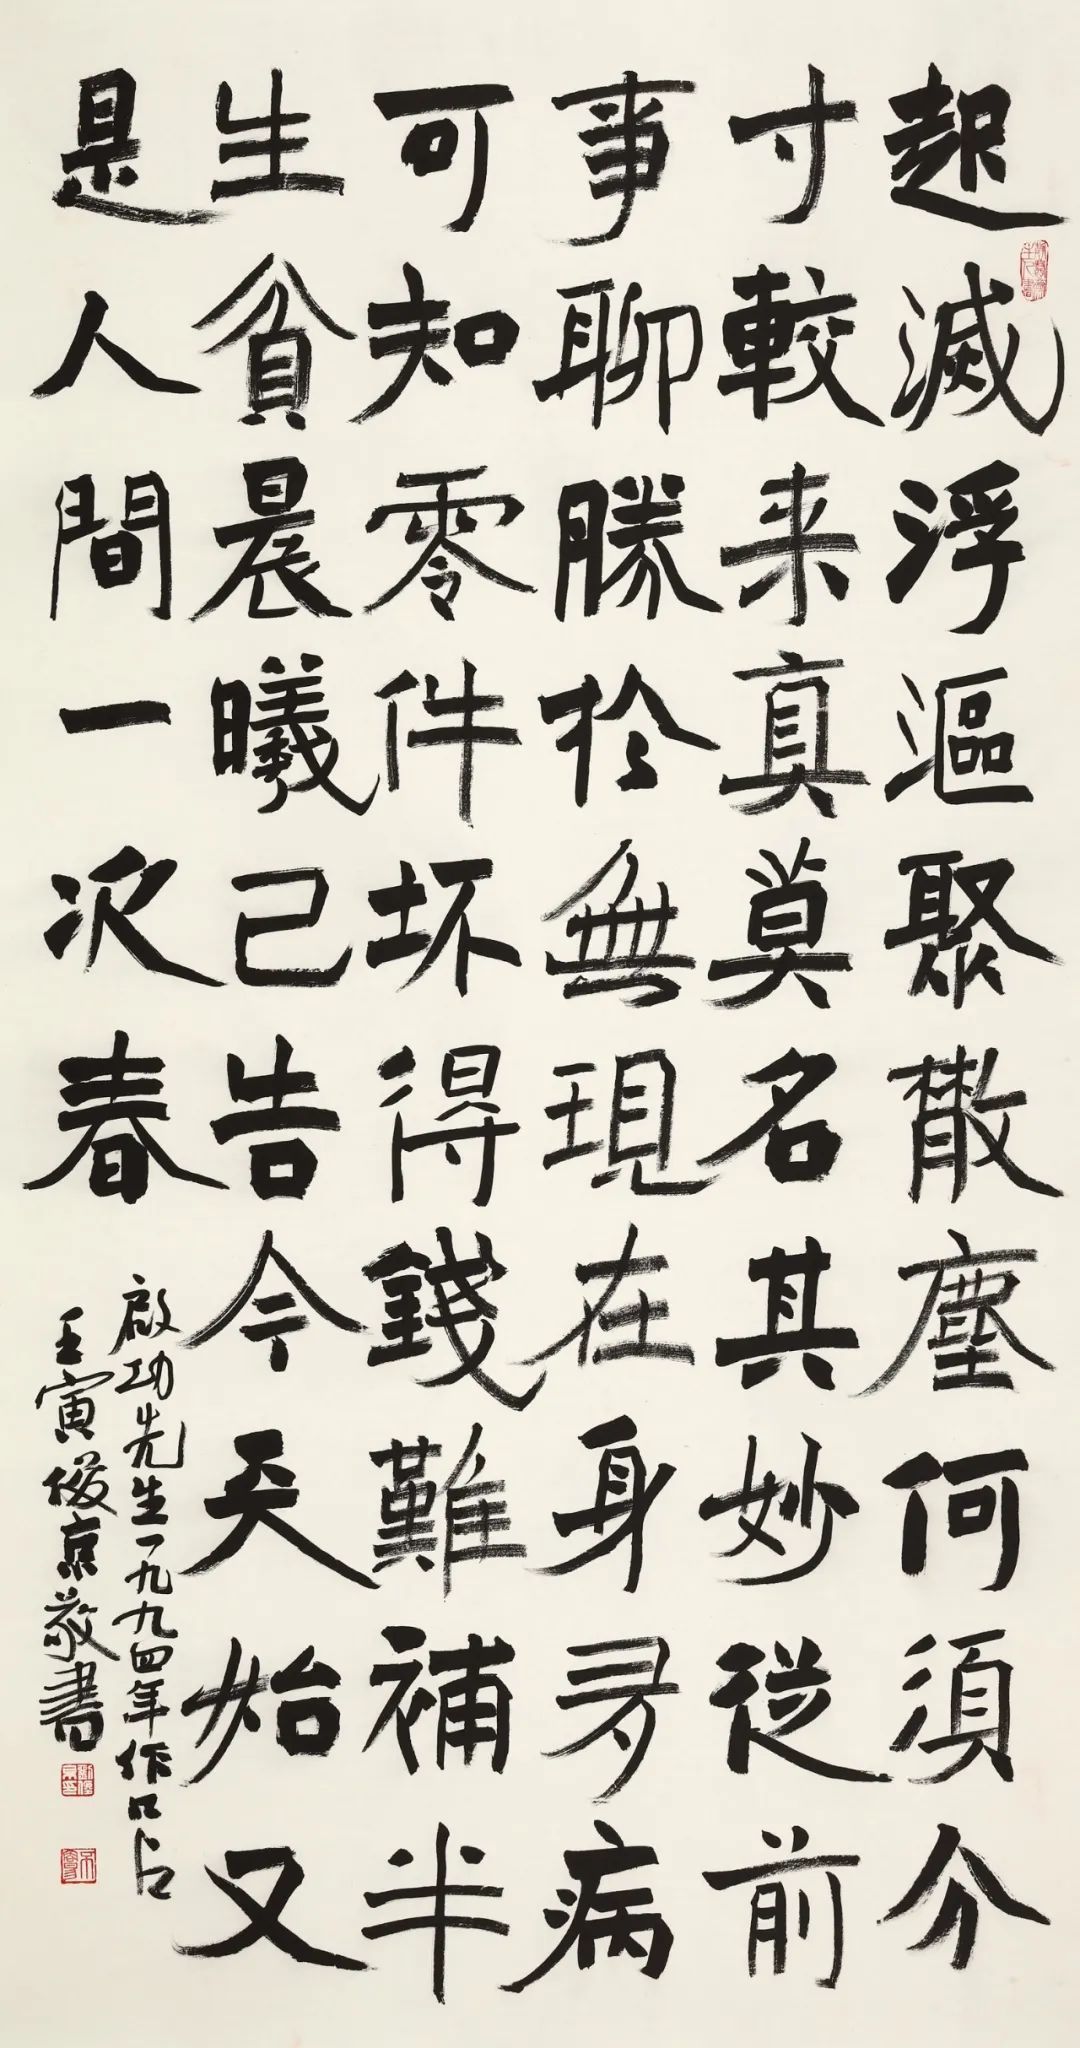 起滅浮漚聚散塵何須分
寸較来真莫名其妙從前
事聊勝於無現在身多病
可知零件坏得錢難補半
生貧晨曦已告今天始又
是人間一次春
啟功先生一九九四年作口占
壬寅俊京敬書